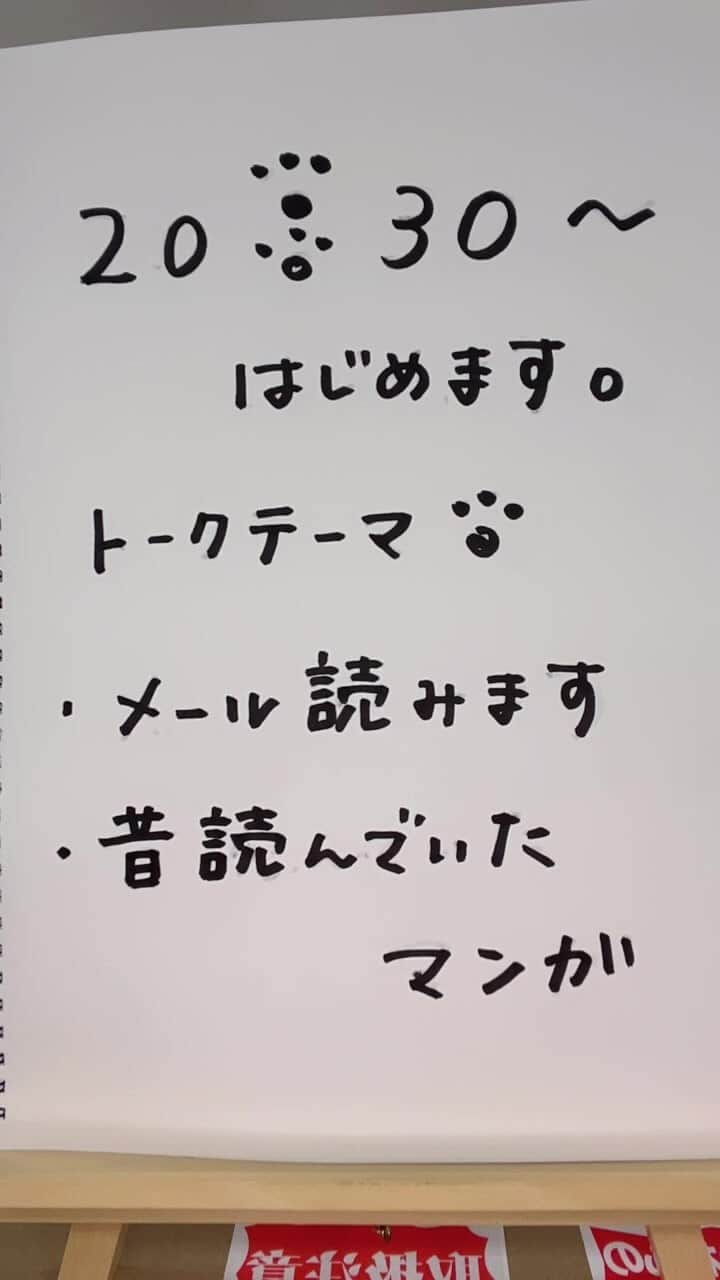 20:30～
はじめます。
トークテーマ
・メール読みます
・昔読んでいた
マンガ
取扱注意
の